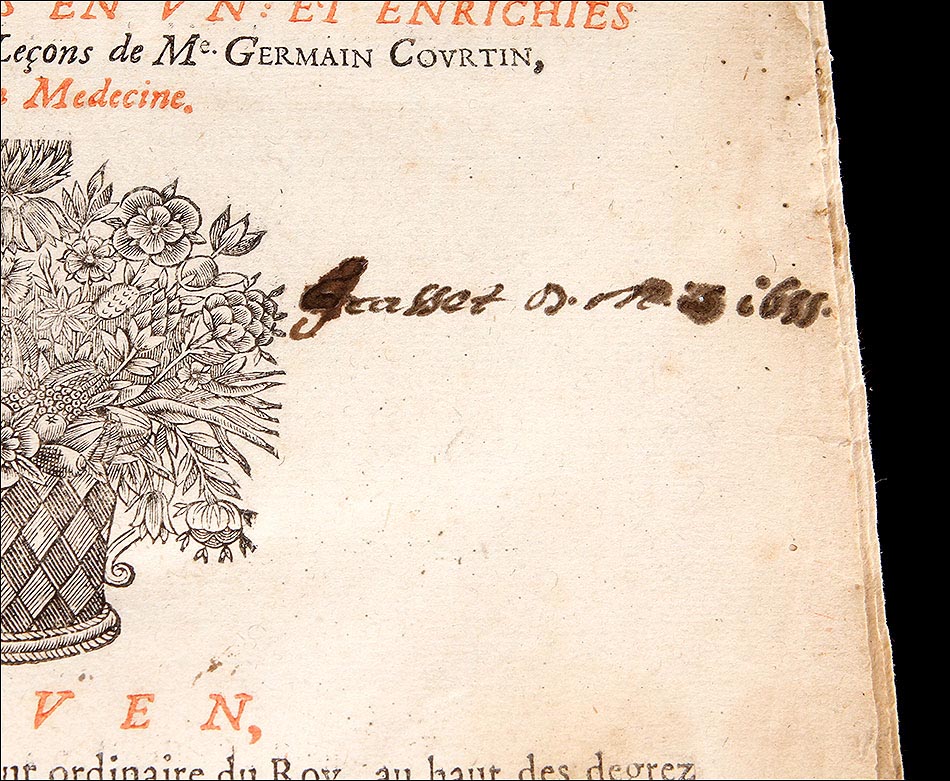 S EN VN: ET ENRICHIES
Leçons de Me. GERMAIN COVRTIN,
Medecine.
1655.
VEN,
ur ordinaire du Roy, au haut des degrez